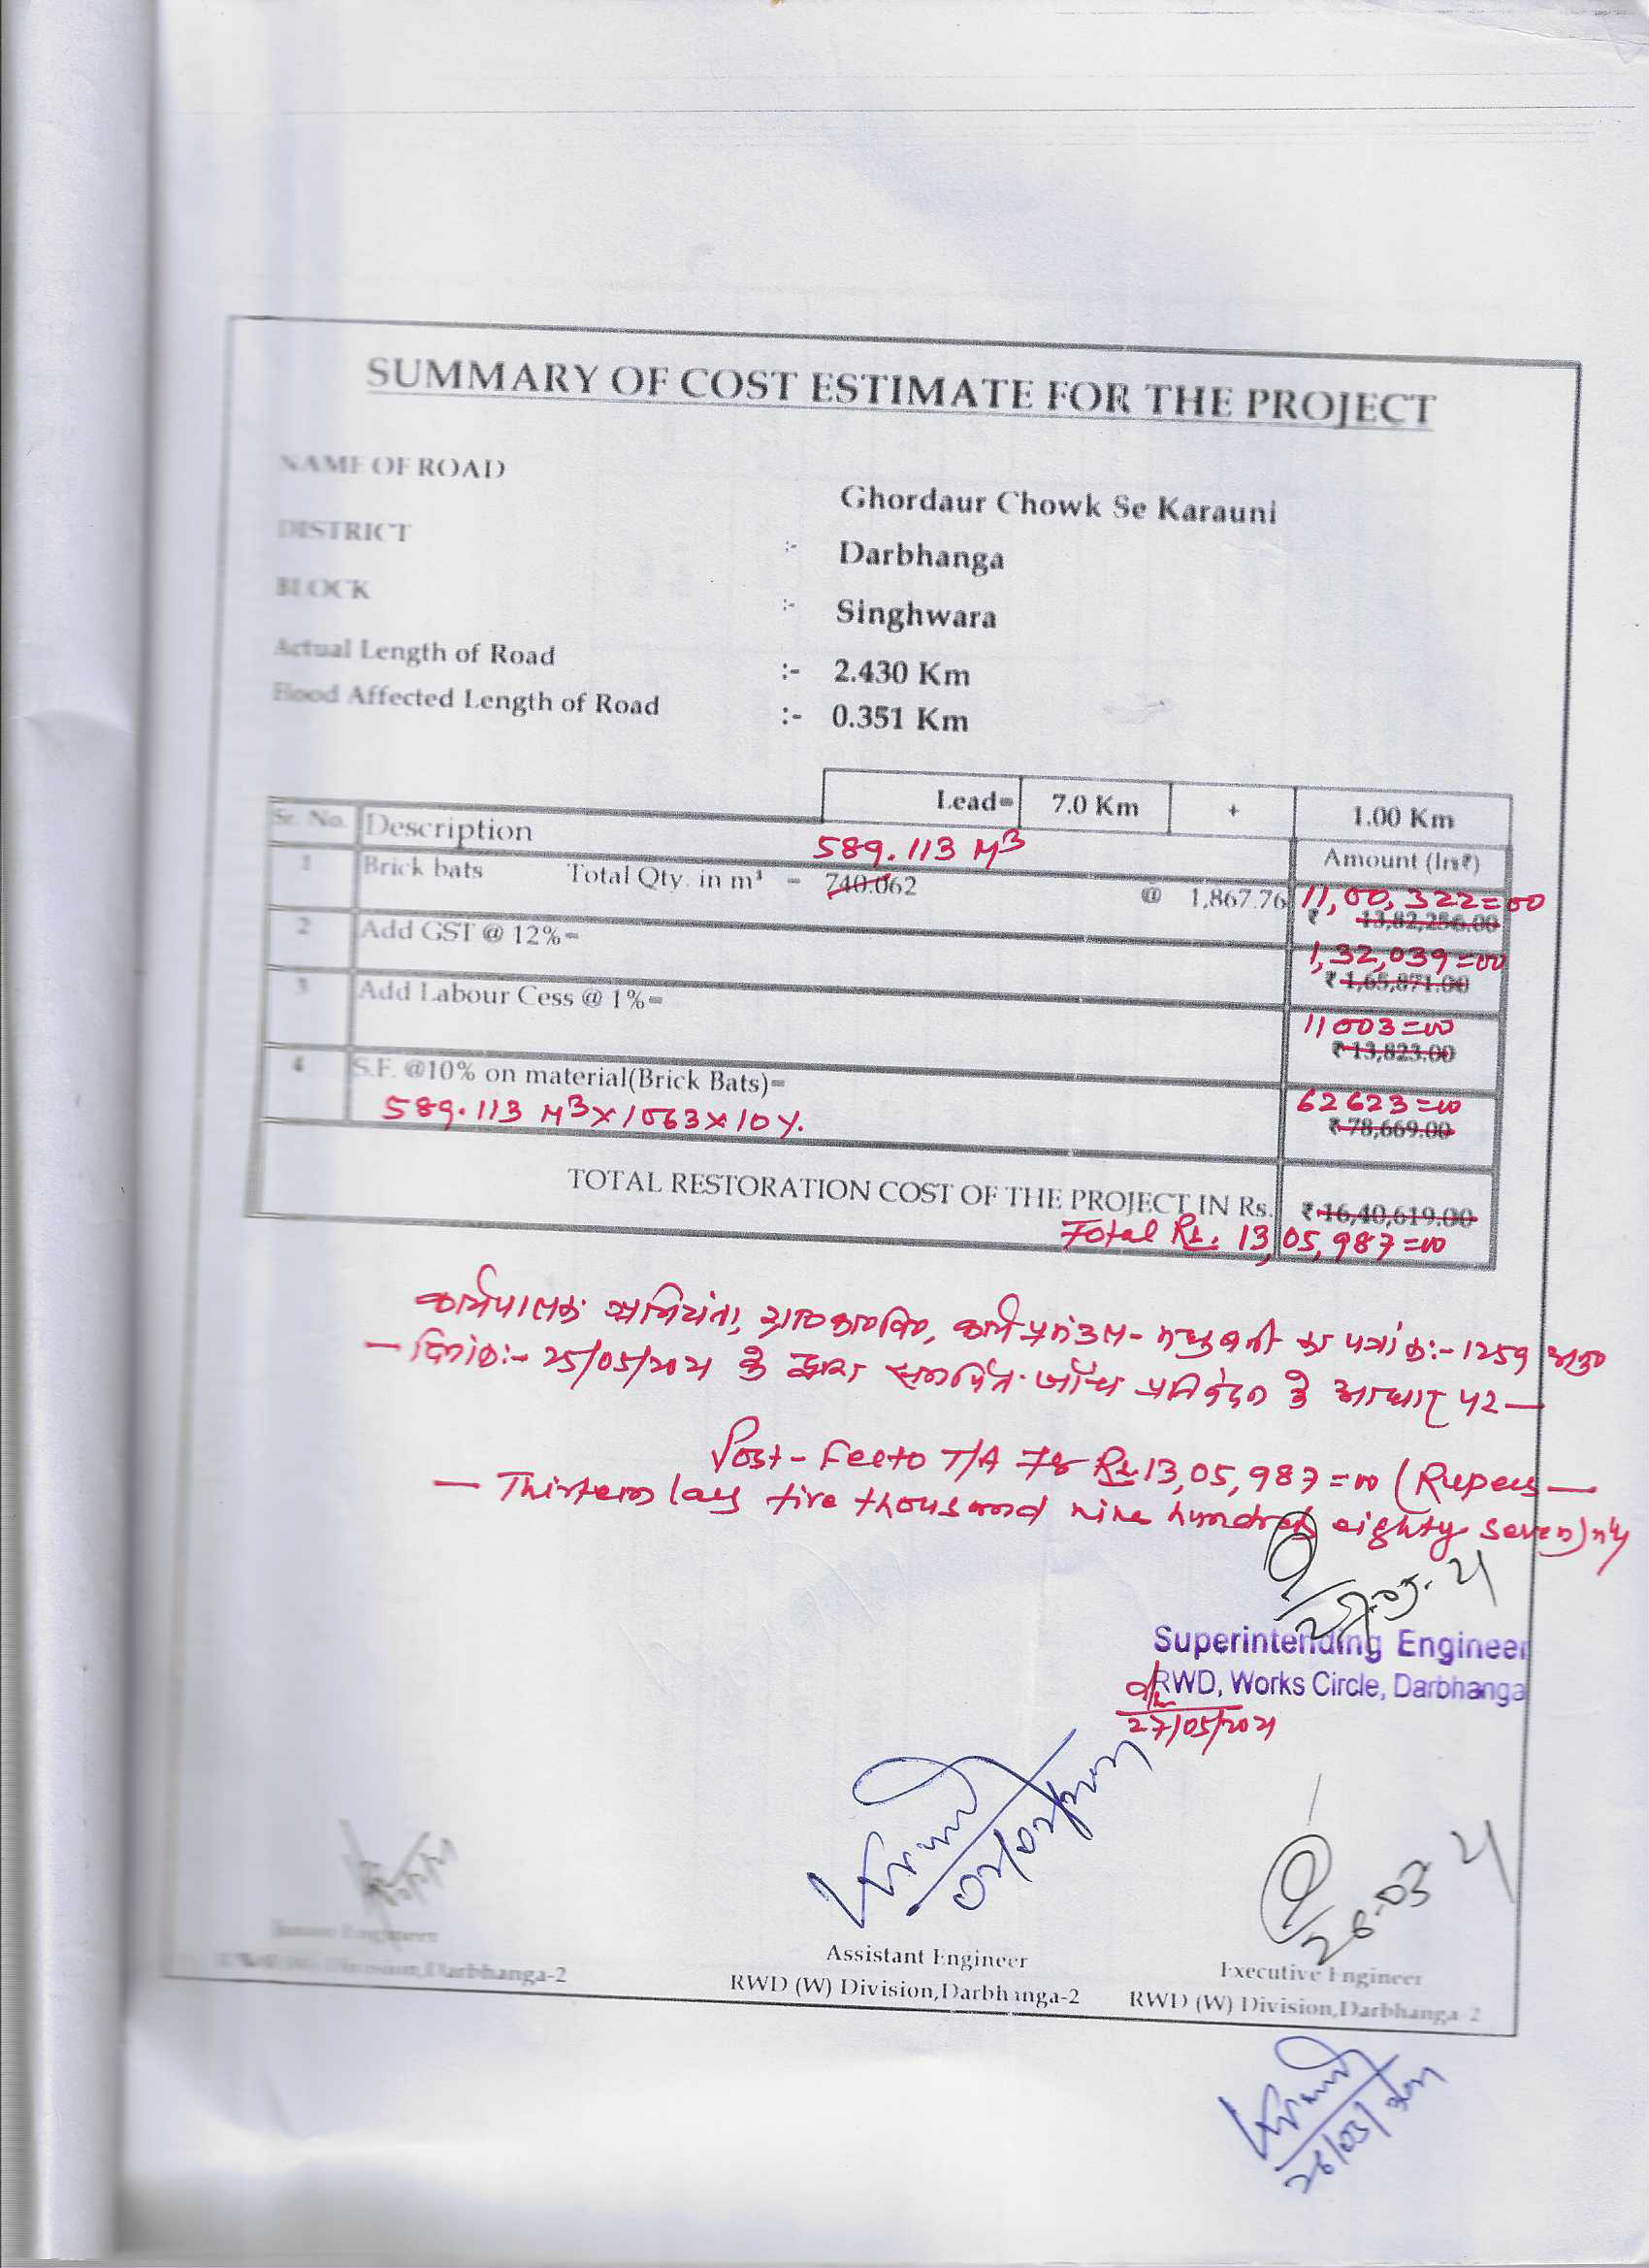 SUMMARY OF COST ESTIMATE FOR THE PROJECT
NAME OF ROAD Ghordaur Chowk Se Karauni
DISTRICT :- Darbhanga
BLOCK :- Singhwara
Actual Length of Road :- 2.430 Km
Flood Affected Length of Road :- 0.351 Km
Lead= 7.0 Km + 1.00 Km
Sr. No. Description 589.113 M³ Amount (In₹)
1 Brick bats Total Qty. in m³ = 740.062 @ 1,867.76 11,00,322=00
₹ 13,82,256.00
2 Add GST @ 12%= 1,32,039=00
₹ 1,65,871.00
3 Add Labour Cess @ 1%= 11003=00
₹ 13,823.00
4 S.F. @10% on material(Brick Bats)= 62623=00
589.113 M³×1063×10%. ₹ 78,669.00
TOTAL RESTORATION COST OF THE PROJECT IN Rs. ₹ 16,40,619.00
Total Rs. 13,05,987=00
कार्यपालक अभियंता, कार्य प्रमंडल- का पत्रांक:- 1259
दिनांक:- 25/05/2021 के द्वारा समर्पित जाँच प्रतिवेदन के आधार पर
Post- Feeto T/A for Rs. 13,05,987=00 (Rupees
Thirteen lacs five thousand nine hundred eighty seven)
Superintending Engineer
RWD, Works Circle, Darbhanga
27/05/2021
02/02/2021
26-03-21
Junior Engineer Assistant Engineer Executive Engineer
RWD (W) Division,Darbhanga-2 RWD (W) Division,Darbhanga-2 RWD (W) Division,Darbhanga-2
26/03/2021